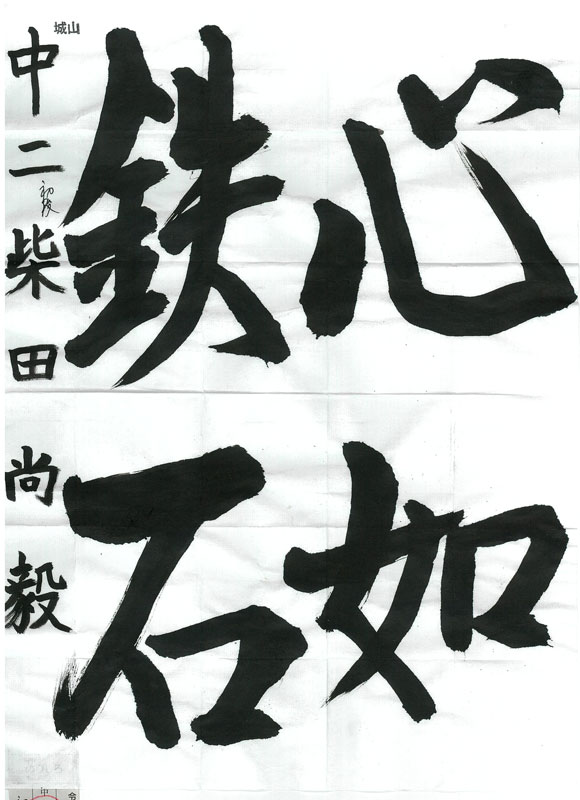 心如
鉄石
城山
中二 初段 柴田 尚毅